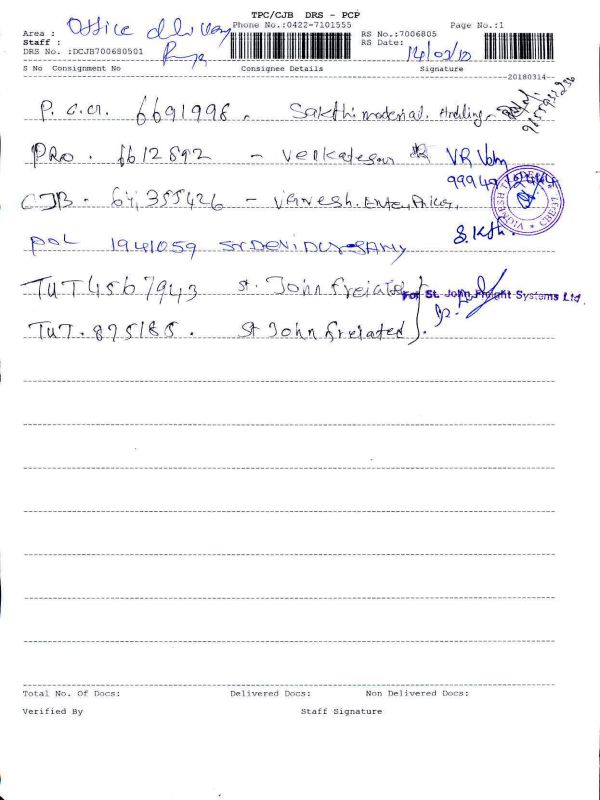 TPC/CJB DRS - PCP
Area : Office delivery Phone No.:0422-7101555 Page No.:1
Staff : RS No.:7006805
DRS No :DCJB700680501 RS Date: 14/03/18
S No Consignment No Consignee Details Signature
20180314
P. C. A. 6691998 - Sakthi material. Handling -
PRO. 6612892 - Venkatesan
CJB - 64,355426 - Vignesh. Enter Prices.
S. Kth.
POL 1941059 Sri DEVI DURGA
TUT 4567943 St. John freiated
For St. John Freight Systems Ltd
TUT. 875185. St John freiated
Total No. Of Docs: Delivered Docs: Non Delivered Docs:
Verified By Staff Signature